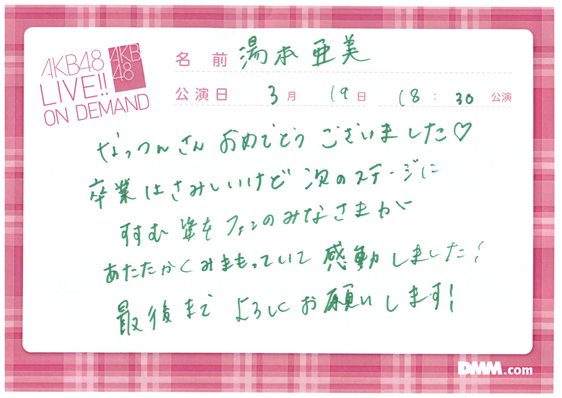 AKB48
LIVE!!
ON DEMAND
AKB
48
名前 湯本亜美
公演日 3月 19日 18:30 公演
なっつんさん おめでとう ございました♡
卒業はさみしいけど 次のステージに
すすむ 姿を ファンのみなさまが
あたたかくみまもっていて 感動しました!
最後まで よろしくお願いします!
DMM.com